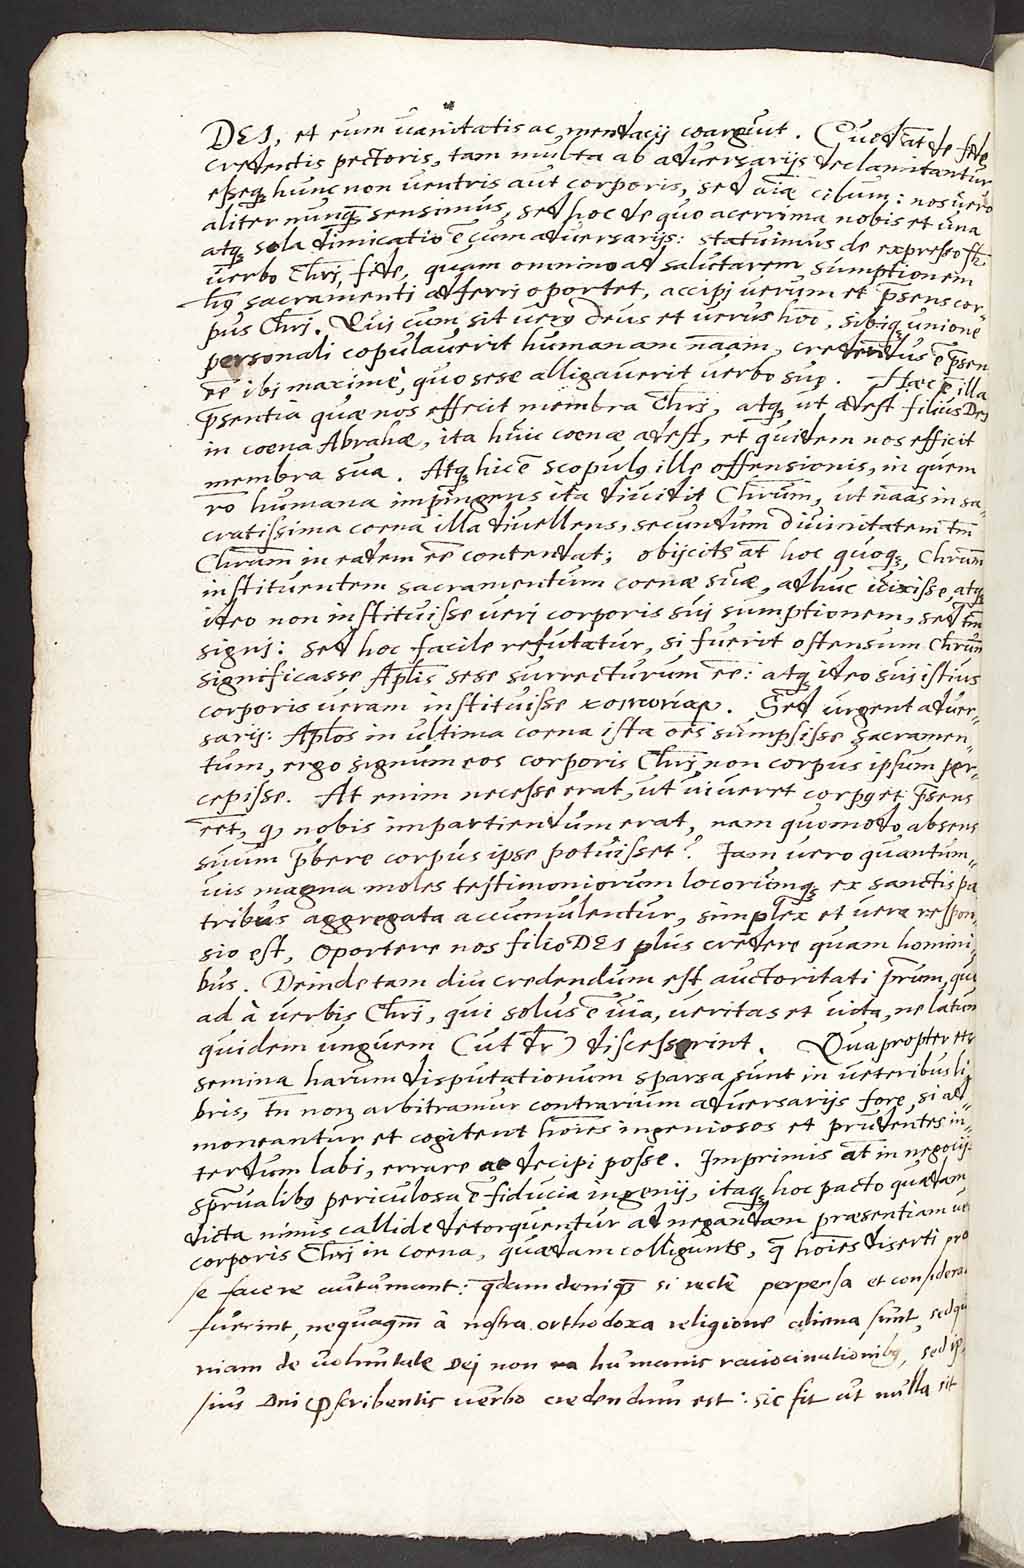 DEI, et eum vanitatis ac mendacij coarguit. Quod āt de fide
credentis pectoris, tam multa ab adversarijs declamitantur
esseq; hunc non ventris aut corporis, sed aīae cibum: nos vero
aliter nunq̄ sensimus, sed hoc de quo acerrima nobis et una
atq; sola dimicatio ē cum adversarijs: statuimus de expresso
verbo Chr̄i, fide, quam omnino ad salutarem sumptionem
hui9 sacramenti adferri oportet, accipi verum et p̄sens cor-
pus Chr̄i. Qui cum sit ver9 deus et verus hō, sibiq; unione
personali copulaverit humanam nāam, credendus ē p̄sens
eē ibi maxime, quo sese alligaverit verbo suo. Haec ē illa
p̄sentia quae nos efficit membra Chr̄i, atq; ut adest filius DEI
in coena Abrahae, ita huic coenae adest, et quidem nos efficit
membra sua. Atq; hic ē scopul9 ille offensionis, in quem
rō humana impingens ita dividit Chr̄um, ut nāas in sa-
cratissima coena illa divellens, secundum divinitatem tm̄
Chr̄um in eadem eē contendat; obijcit āt hoc quoq;, Chr̄um
instituentem sacramentum coenae suae, adhuc vixisse, atq;
ideo non instituisse veri corporis sui sumptionem, sed tm̄
signi: sed hoc facile refutatur, si fuerit ostensum Chr̄um
significasse Apl̄is sese surrecturum eē: atq; ideo sui istius
corporis veram instituisse κοινωνίαν. Sed urgent adver-
sarij: Apl̄os in ultima coena ista oēs sumpsisse sacramen-
tum, ergo signum eos corporis Chr̄i non corpus ipsum per-
cepisse. At enim necesse erat, ut viveret corp9 et p̄sens
eēt, qđ nobis impartiendum erat, nam quomodo absens
suum p̄bere corpus ipse potuisset? Iam vero quantum-
vis magna moles testimoniorum locorumq; ex sanctis pa
tribus aggregata accumulentur, simplex et vera respon
sio est, oportere nos filio DEI plus credere quam homini
bus. Deinde tam diu credendum est auctoritati p̄rum, quo
ad à verbis Chr̄i, qui solus ē via, veritas et vita, ne latum
quidem unguem (ut dr̄) discesserint. Quapropter etsi
semina harum disputationum sparsa sunt in veteribus li
bris, tn̄ non arbitramur contrarium adversarijs fore, si ad-
moneantur et cogitent hōies ingeniosos et prudentes in-
terdum labi, errare ac decipi posse. Imprimis āt in negocijs
sp̄ualib9 periculosa ē fiducia ingenij, itaq; hoc pacto quaedam
dicta nimis callide detorquentur ad negandam praesentiam ve
corporis Chr̄i in coena, quaedam colligunt, q̄ hōies diserti pro
se facere autumant: q̄dam deniq; si recte perpensa et considera
fuerint, nequaqm̄ à nostra orthodoxa religione aliena sunt, sed quo
niam de voluntate Dej non humanis raciocinationib9, sed ip
sius Dn̄i p̄scribentis verbo credendum est: sic fit ut nulla sit